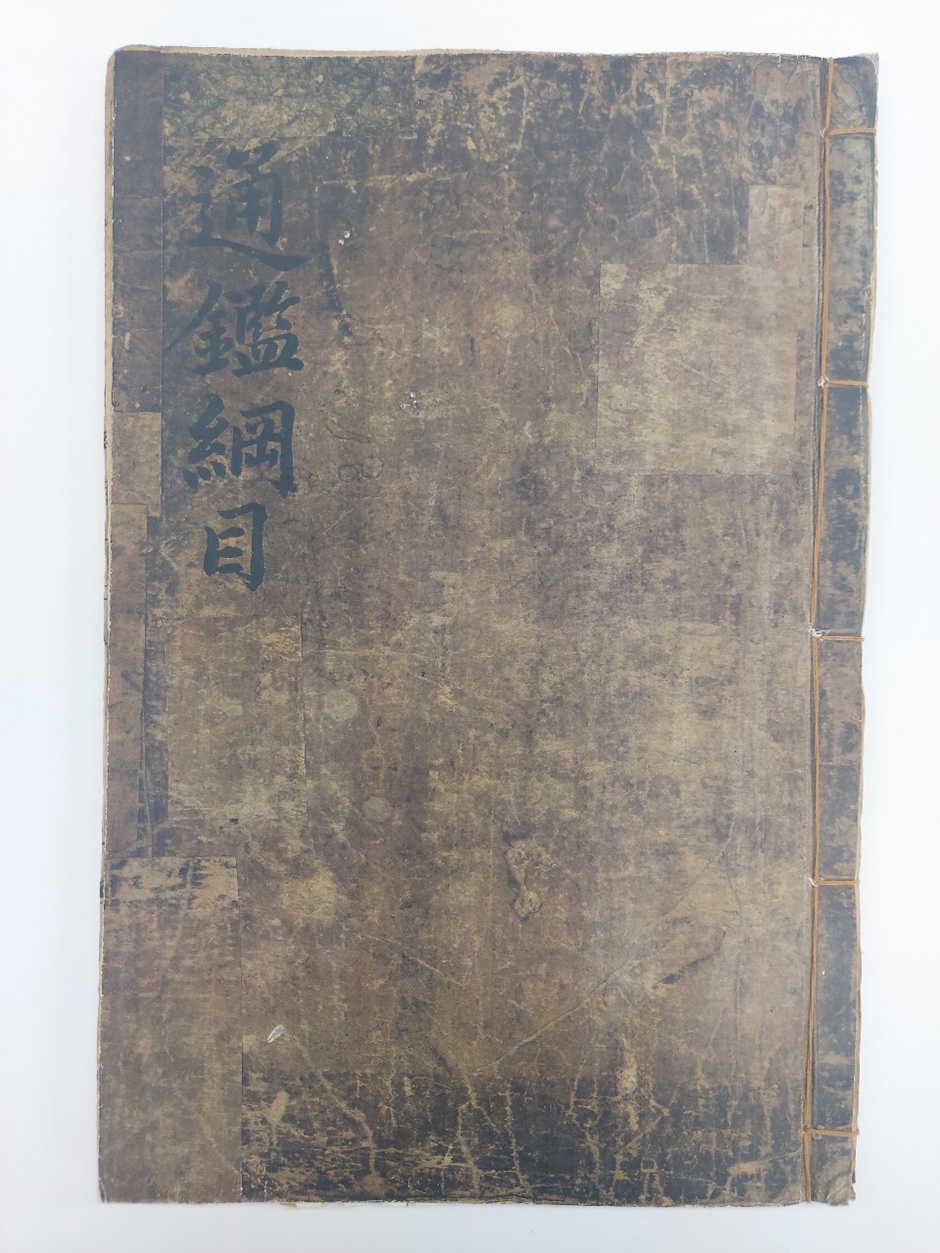 通鑑綱目